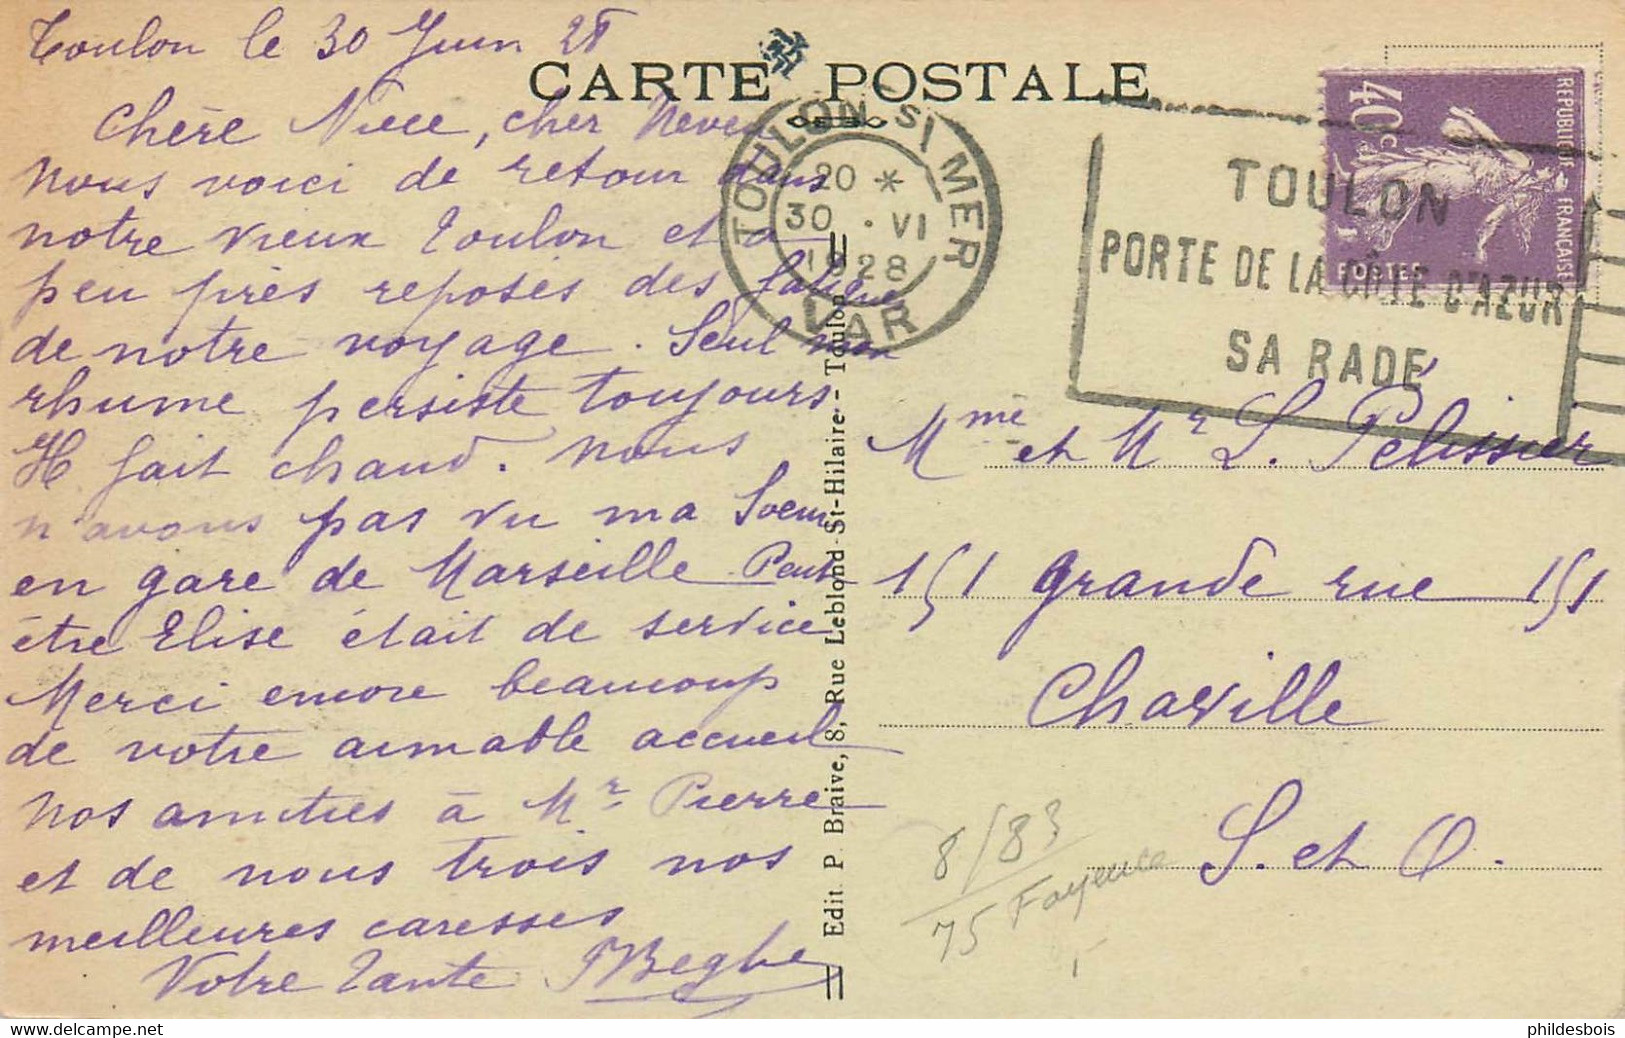 Toulon le 30 Juin 28
CARTE POSTALE
Chère Niece, cher Neveu
nous voici de retour dans
notre vieux Toulon et à
peu près reposés des fatigues
de notre voyage. Seul mon
rhume persiste toujours
Il fait chaud. nous
n'avons pas vu ma Soeur
en gare de Marseille Peut
être Elise était de service
Merci encore beaucoup
de votre aimable accueil
nos amitiés à Mr Pierre
et de nous trois nos
meilleures caresses
Votre Tante Beghe
Edit. P. Braive, 8, Rue Leblond-St-Hilaire. - Toulon
TOULON S/ MER
20 *
30 . VI
1928
VAR
TOULON
PORTE DE LA CÔTE D'AZUR
SA RADE
REPUBLIQUE FRANÇAISE
40c
POSTES
Mme et Mr L. Pélissier
151 grande rue 151
Chaville
S. et O.
8/83
75 Fayence
phildesbois